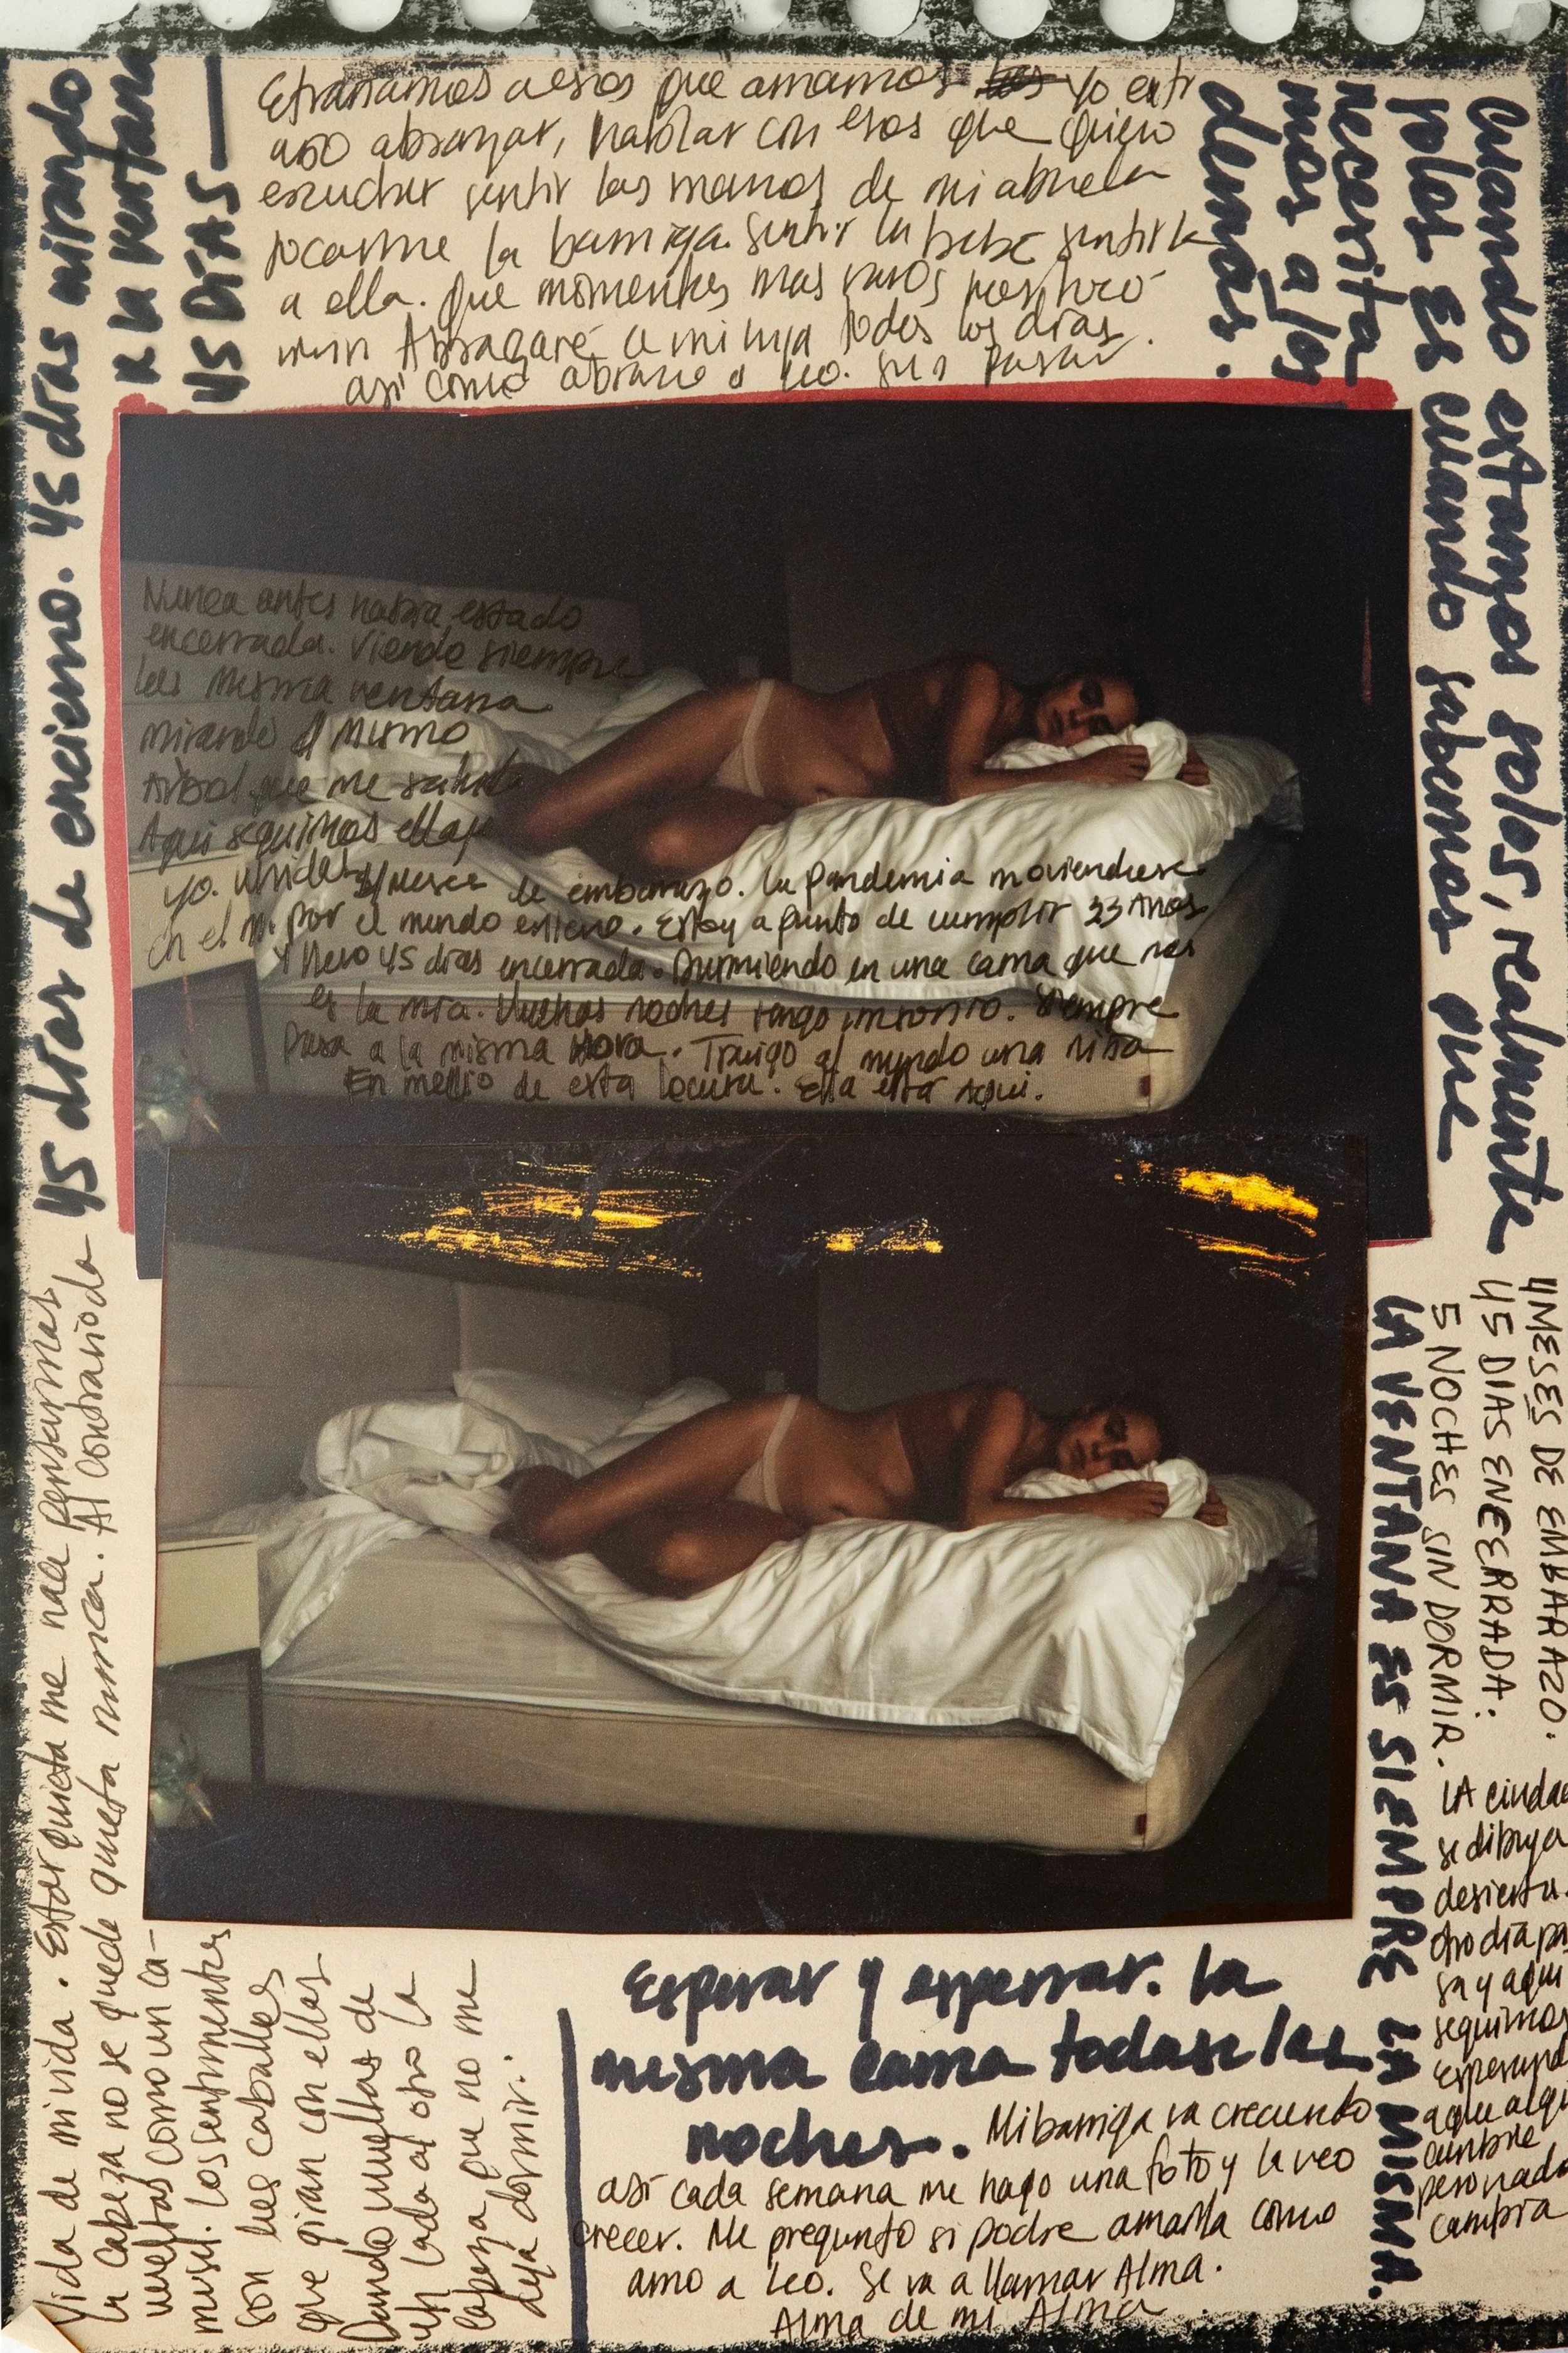 45 días de encierro. 45 días mirando
a la ventana
45 DÍAS —
Etrañamos a esos que amamos Yo extr
año abrazar, hablar con esos que quiero
escuchar sentir las manos de mi abuela
tocarme la barriga. Sentir la bebe sentirla
a ella. Que momentos mas raros
Abrazaré a mi hija todos los días.
así como abrazo a Leo. Sin pasar
Cuando estamos solos, realmente
solos es cuando sabemos que
necesita-
mos a los
demás.
Nunca antes habia estado
encerrada. Viendo siempre
la misma ventana
mirando el mismo
Arbol que me saluda
Aqui seguimos ella y
yo. Unidas
en el
4 Meses de embarazo. La pandemia moviendose
por el mundo entero. Estoy a punto de cumplir 33 Años
Y llevo 45 días encerrada. Durmiendo en una cama que no
es la mía. Muchas noches tengo insomnio. Siempre
Pasa a la misma Hora. Traigo al mundo una niña
En medio de esta locura. Ella está Aqui.
4 MESES DE EMBARAZO.
45 DIAS ENCERRADA:
5 NOCHES SIN DORMIR.
LA VENTANA ES SIEMPRE LA MISMA.
LA ciudad
se dibuja
desierta.
Otro día pa
sa y aqui
seguimos
esperand
a que algo
cambie
pero nada
cambia
Vida de mi vida. Estar quieta me hace pensar mas
la cabeza no se queda quieta nunca. Al contrario da
vueltas como un ca-
rrusel. Los sentimientos
son los caballos
que giran con ellos
Dando vueltas de
un lado al otro la
cabeza que no me
deja dormir.
Esperar y esperar. La
misma cama todas las
noches. Mi barriga va creciendo
así cada semana me hago una foto y la veo
crecer. Me pregunto si podre amarla como
amo a Leo. Se va a llamar Alma.
Alma de mi Alma